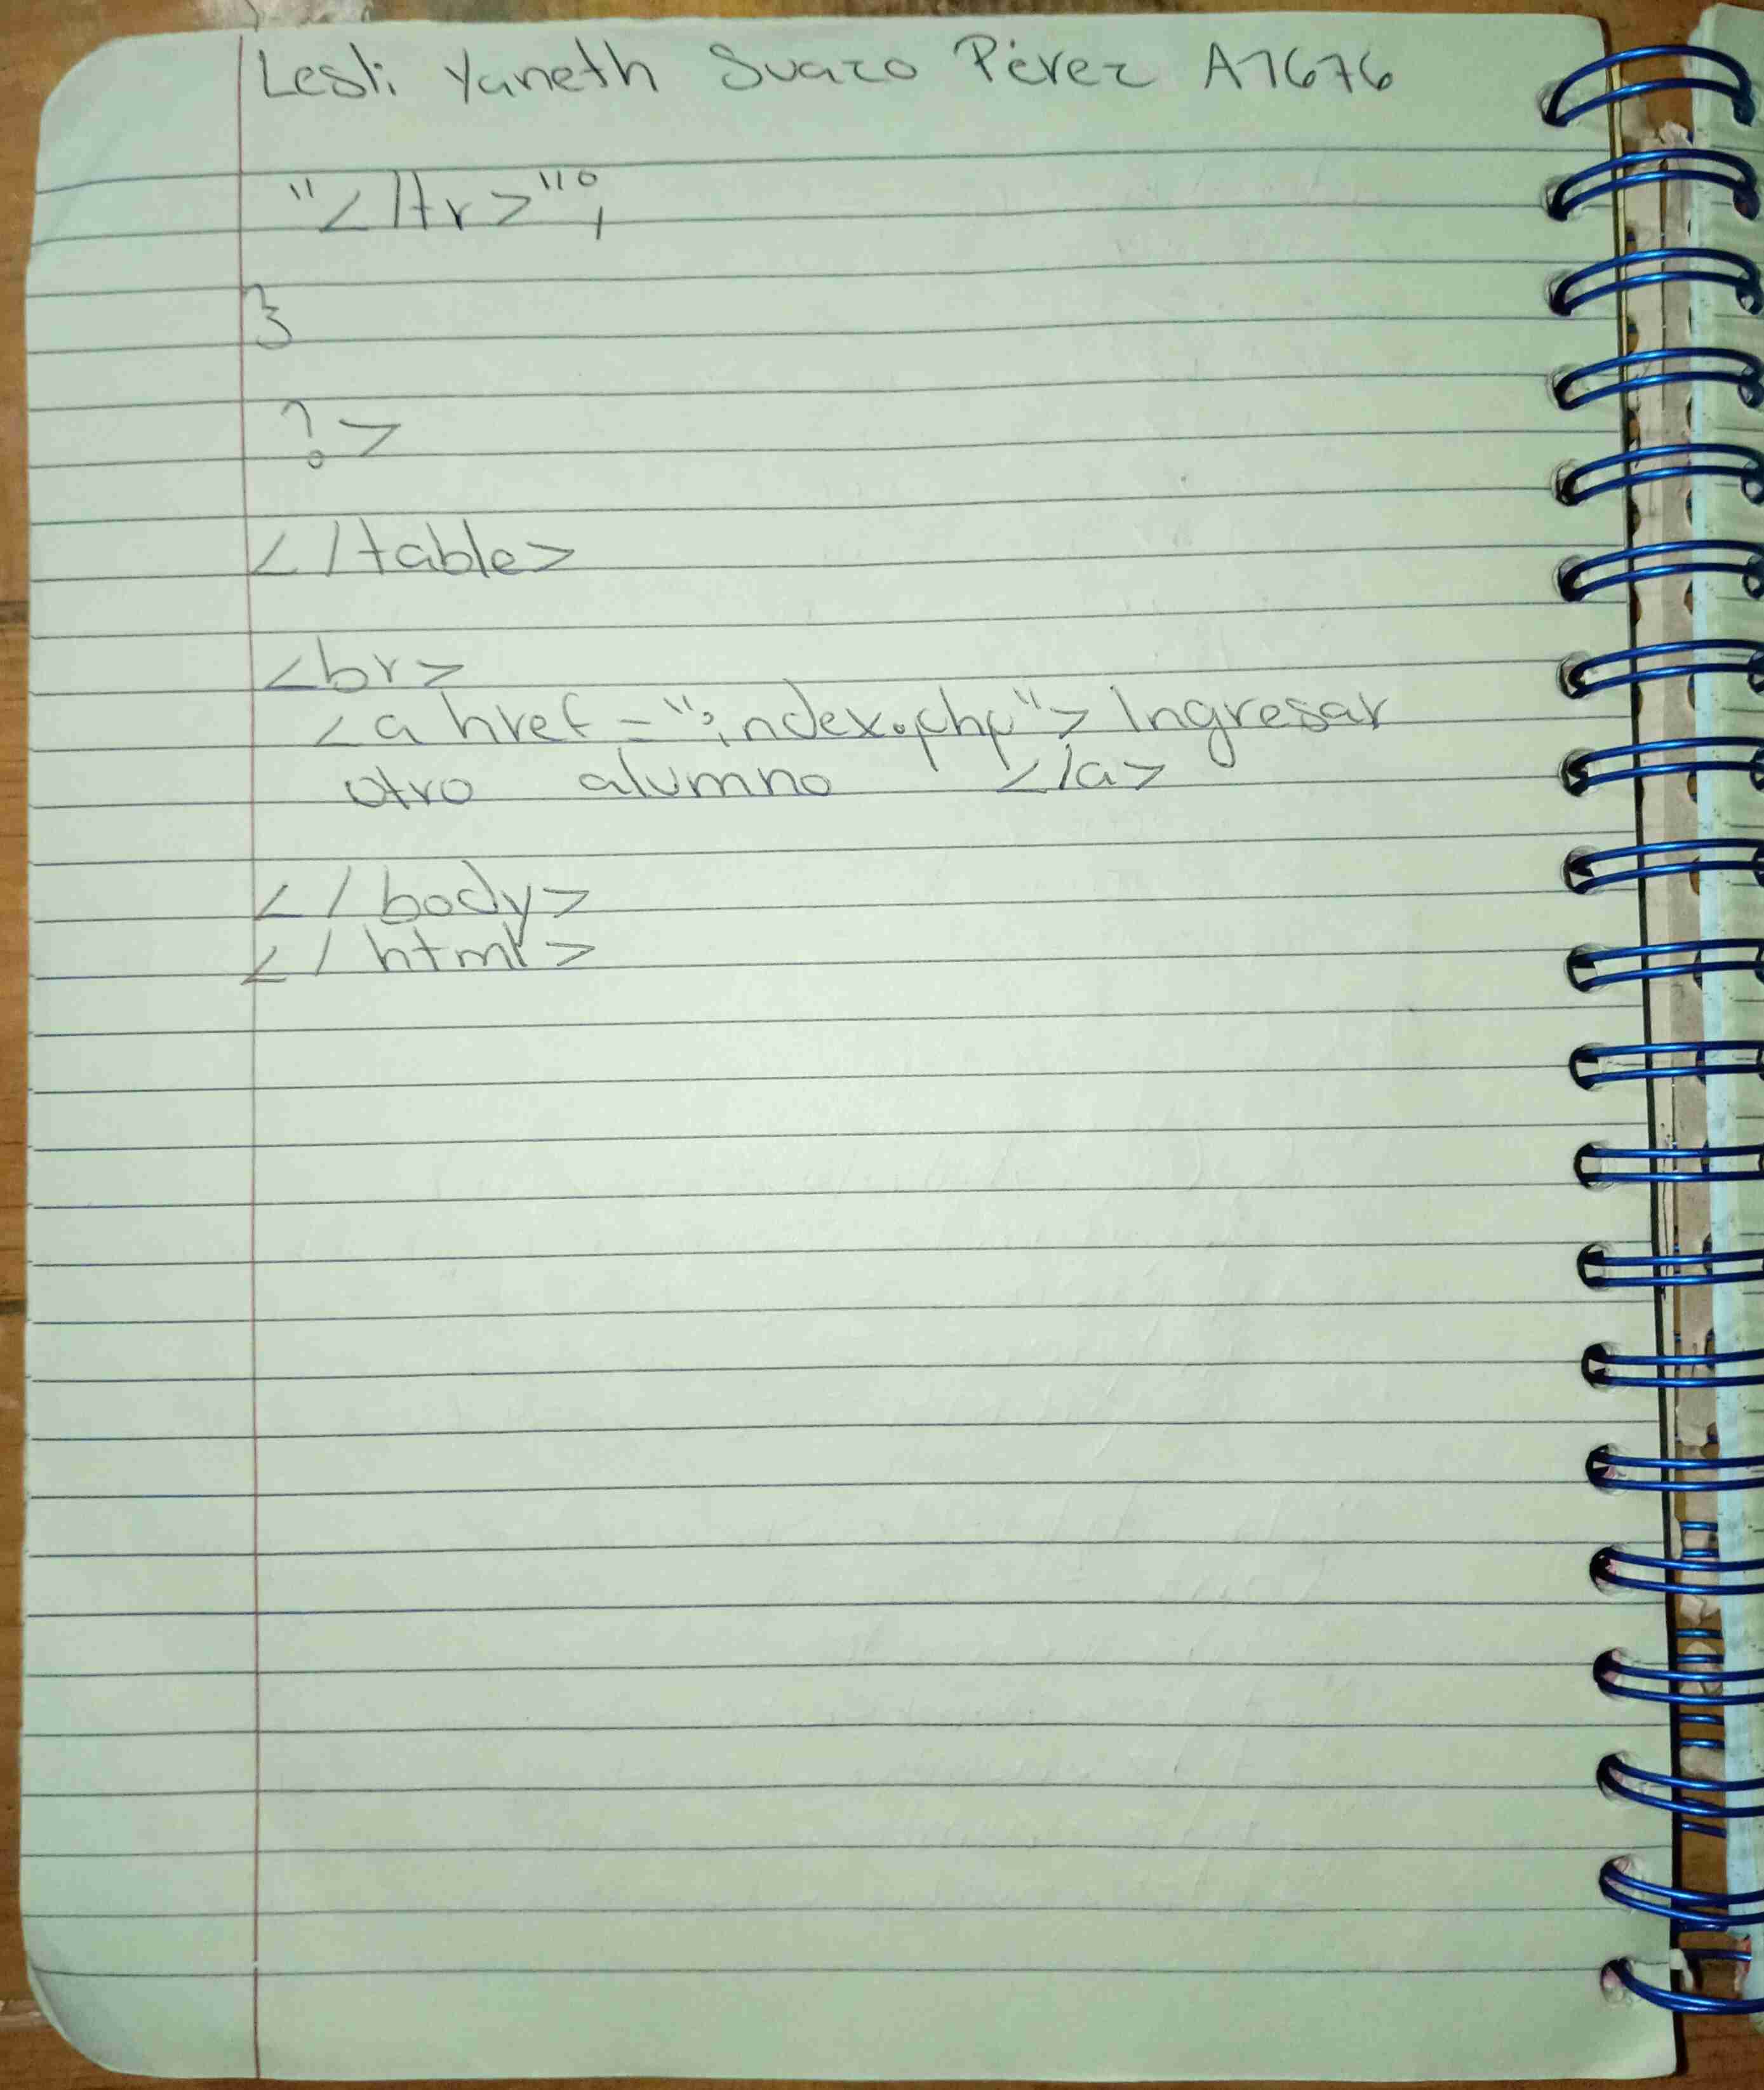 Lesli Yaneth Suazo Pérez A7676
"</tr>";
}
?>
</table>
<br>
<a href="index.php"> Ingresar
otro alumno </a>
</body>
</html>